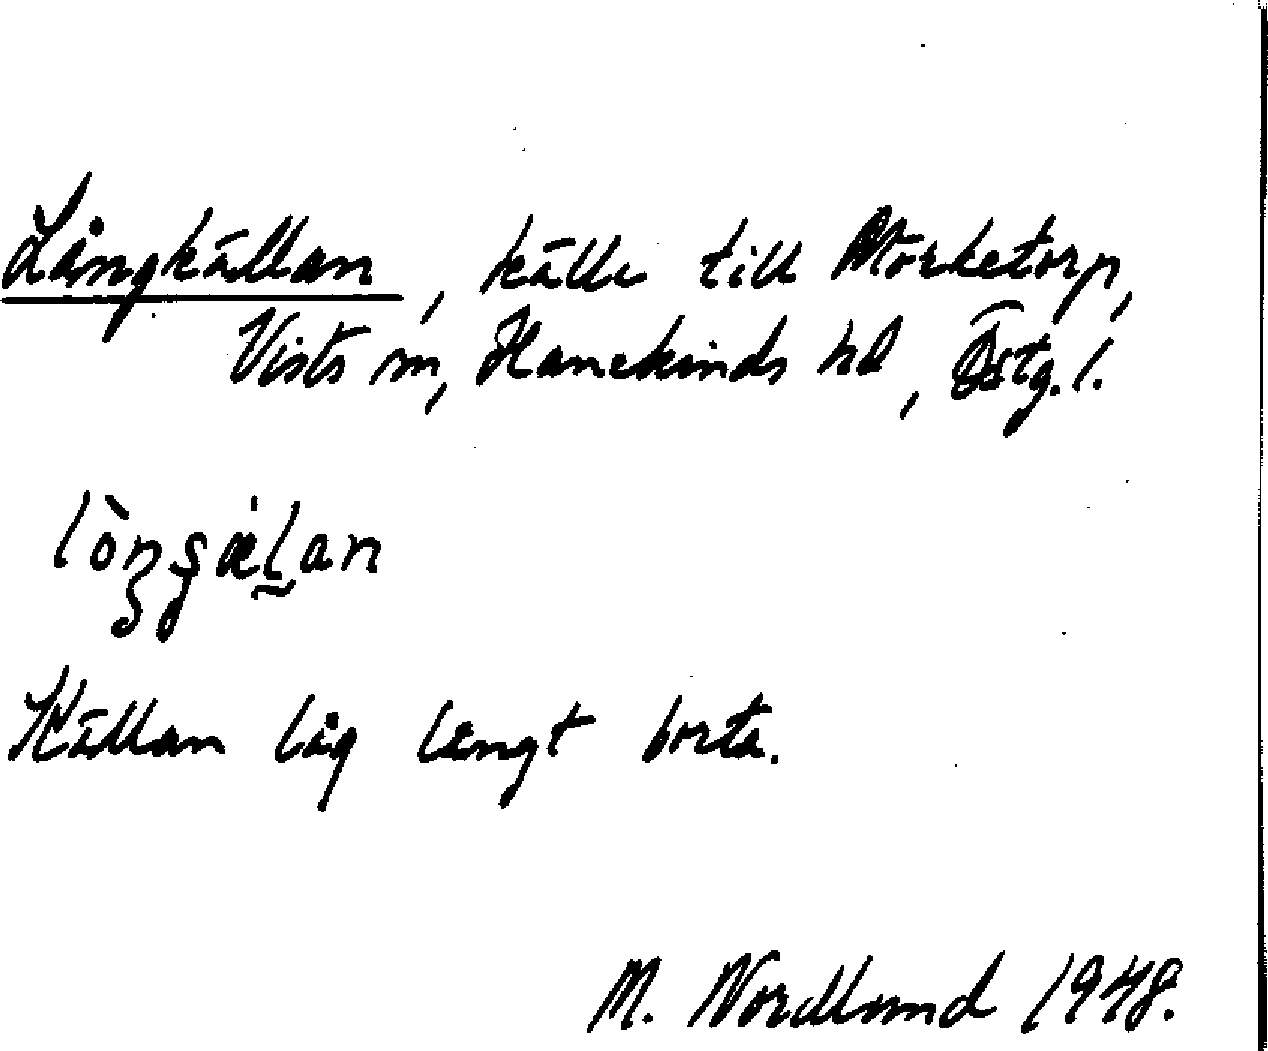 Långkällan, källa till Mörketorp,
Vists sn, Hanekinds hd, Östg. l.
Källan låg långt borta.
M. Nordlund 1948.